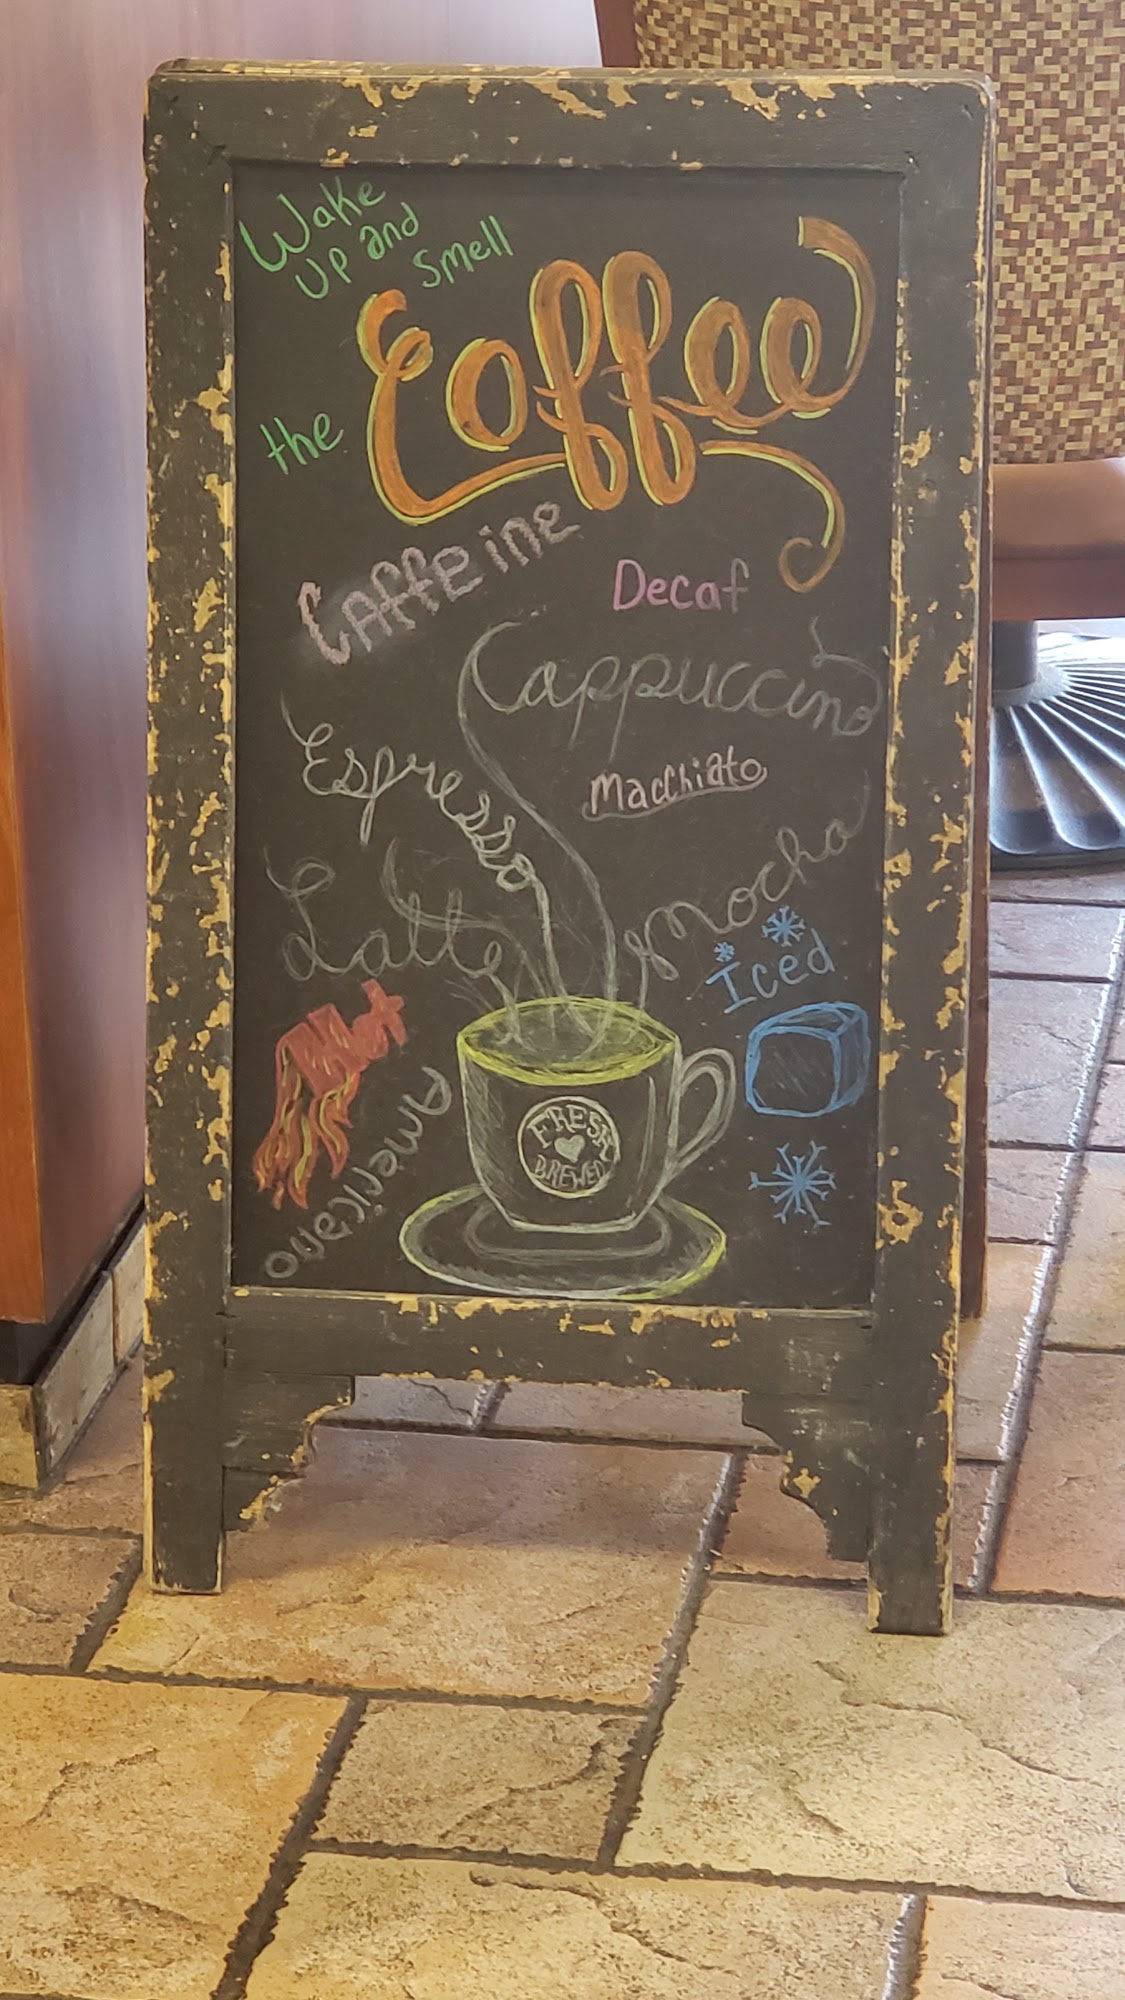 Wake
up and
smell
the Coffee
Caffeine
Decaf
Cappuccino
Espresso
Macchiato
Latte
Mocha
Iced
Hot
Americano
FRESH
BREWED